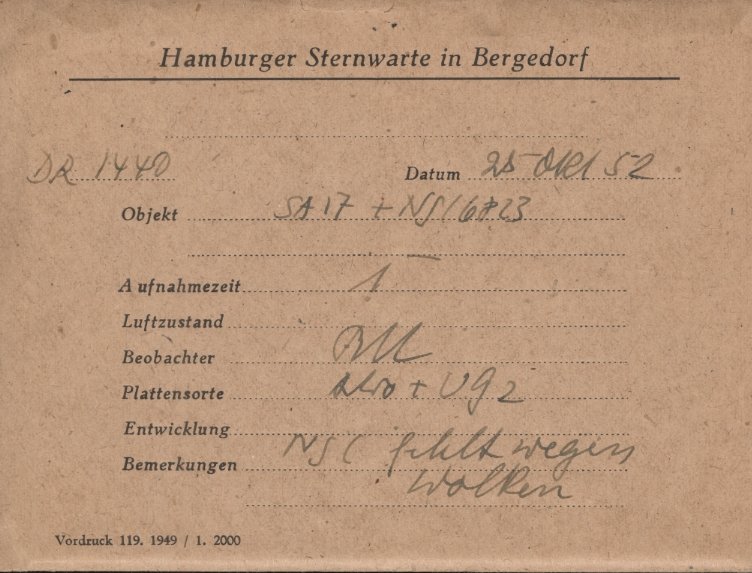 Hamburger Sternwarte in Bergedorf
DR 1440 Datum 25 Okt 52
Objekt SA 17 + NGC 6823
Aufnahmezeit
Luftzustand
Beobachter
Plattensorte + UG2
Entwicklung
Bemerkungen NGC fehlt wegen
Wolken
Vordruck 119. 1949 / 1. 2000